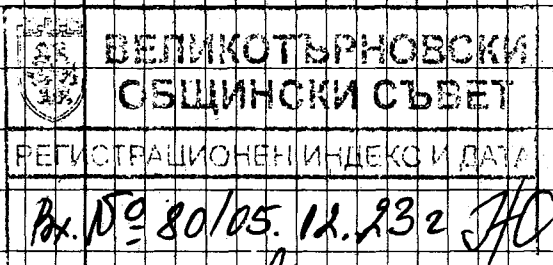 ВЕЛИКОТЪРНОВСКИ
ОБЩИНСКИ СЪВЕТ
РЕГИСТРАЦИОНЕН ИНДЕКС И ДАТА
Вх. № 80/05.12.23г